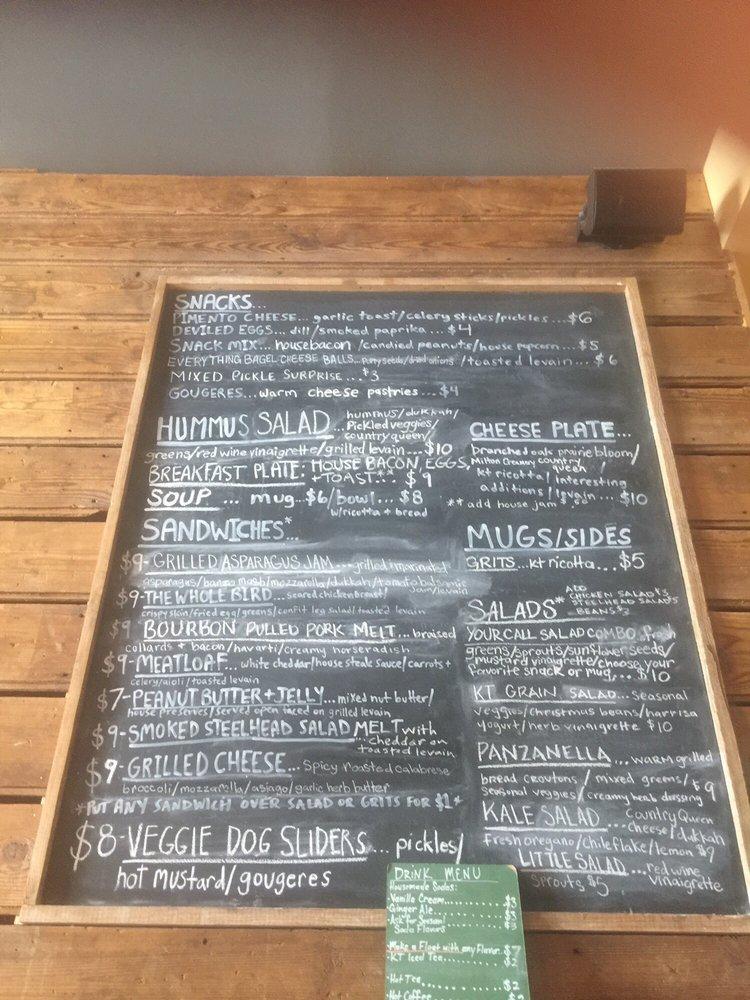 SNACKS...
PIMENTO CHEESE... garlic toast/celery sticks/pickles...$6
DEVILED EGGS... dill/smoked paprika...$4
SNACK MIX... housebacon/candied peanuts/house popcorn...$5
EVERYTHING BAGEL CHEESE BALLS... /toasted levain...$6
MIXED PICKLE SURPRISE...$3
GOUGERES...warm cheese pastries...$4
HUMMUS SALAD ...hummus/dukkah/
Pickled veggies/
country queen/
greens/red wine vinaigrette/grilled levain...$10
BREAKFAST PLATE: HOUSE BACON, EGGS,
+TOAST** $9
SOUP ... mug...$6/bowl...$8
w/ricotta + bread
CHEESE PLATE...
branched oak prairie bloom/
Milton Creamery country queen/
kt ricotta/interesting
additions/levain...$10
** add house jam $.50
SANDWICHES*...
$9-GRILLED ASPARAGUS JAM...grilled+marinated
asparagus/ mozzarella/dukkah/tomato balsamic
jam/levain
$9-THE WHOLE BIRD...seared chicken breast/
crispy skin/fried egg/greens/confit leg salad/toasted levain
$9 BOURBON PULLED PORK MELT...braised
collards + bacon/havarti/creamy horseradish
$9-MEATLOAF... white cheddar/house steak sauce/carrots+
celery/aioli/toasted levain
$7-PEANUT BUTTER+JELLY...mixed nut butter/
house preserves/served open faced on grilled levain
$9-SMOKED STEELHEAD SALAD MELT with
cheddar on
toasted levain
$9-GRILLED CHEESE...Spicy roasted calabrese
broccoli/mozzarella/asiago/garlic herb butter
*PUT ANY SANDWICH OVER SALAD OR GRITS FOR $1*
$8-VEGGIE DOG SLIDERS... pickles/
hot mustard/gougeres
MUGS/SIDES
GRITS...kt ricotta...$5
SALADS*
ADD
CHICKEN SALAD $3
STEELHEAD SALAD $3
BEANS $2
YOUR CALL SALAD COMBO fresh
greens/sprouts/sunflower seeds/
mustard vinaigrette/choose your
favorite snack or mug...$10
KT GRAIN SALAD...seasonal
veggies/christmas beans/harrisa
yogurt/herb vinaigrette $10
PANZANELLA ...warm grilled
bread croutons/mixed greens/$9
seasonal veggies/creamy herb dressing
KALE SALAD ...Country Queen
cheese/dukkah
fresh oregano/chile flake/lemon $9
LITTLE SALAD...red wine
vinaigrette
sprouts $5
DRINK MENU
Housemade Sodas:
-Vanilla Cream
-Ginger Ale
-Ask for Seasonal
Soda Flavors
Make a Float with any Flavor
-KT Iced Tea
-Hot Tea
-Hot Coffee